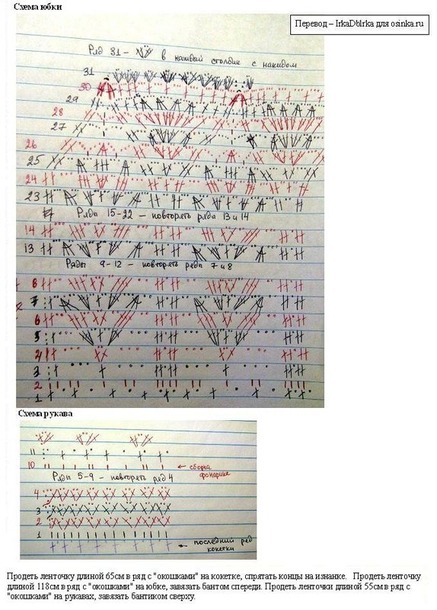 Схема юбки
Перевод – IrkaDbIrka для osinka.ru
Ряд 31 - в каждый столбик с накидом
31
30
29
28
27
26
25
24
23
Ряды 15-22 - повторять ряда 13 и 14
14
13
Ряды 9-12 - повторять ряда 7 и 8
8
7
6
5
4
3
2
1
Схема рукава
11
10
сборка фонарика
Ряды 5-9 - повторять ряд 4
4
3
2
1
последний ряд
кокетки
Продеть ленточку длиной 65см в ряд с "окошками" на кокетке, спрятать концы на изнанке. Продеть ленточку
длиной 118см в ряд с "окошками" на юбке, завязать бантом спереди. Продеть ленточки длиной 55см в ряд с
"окошками" на рукавах, завязать бантиком сверху.